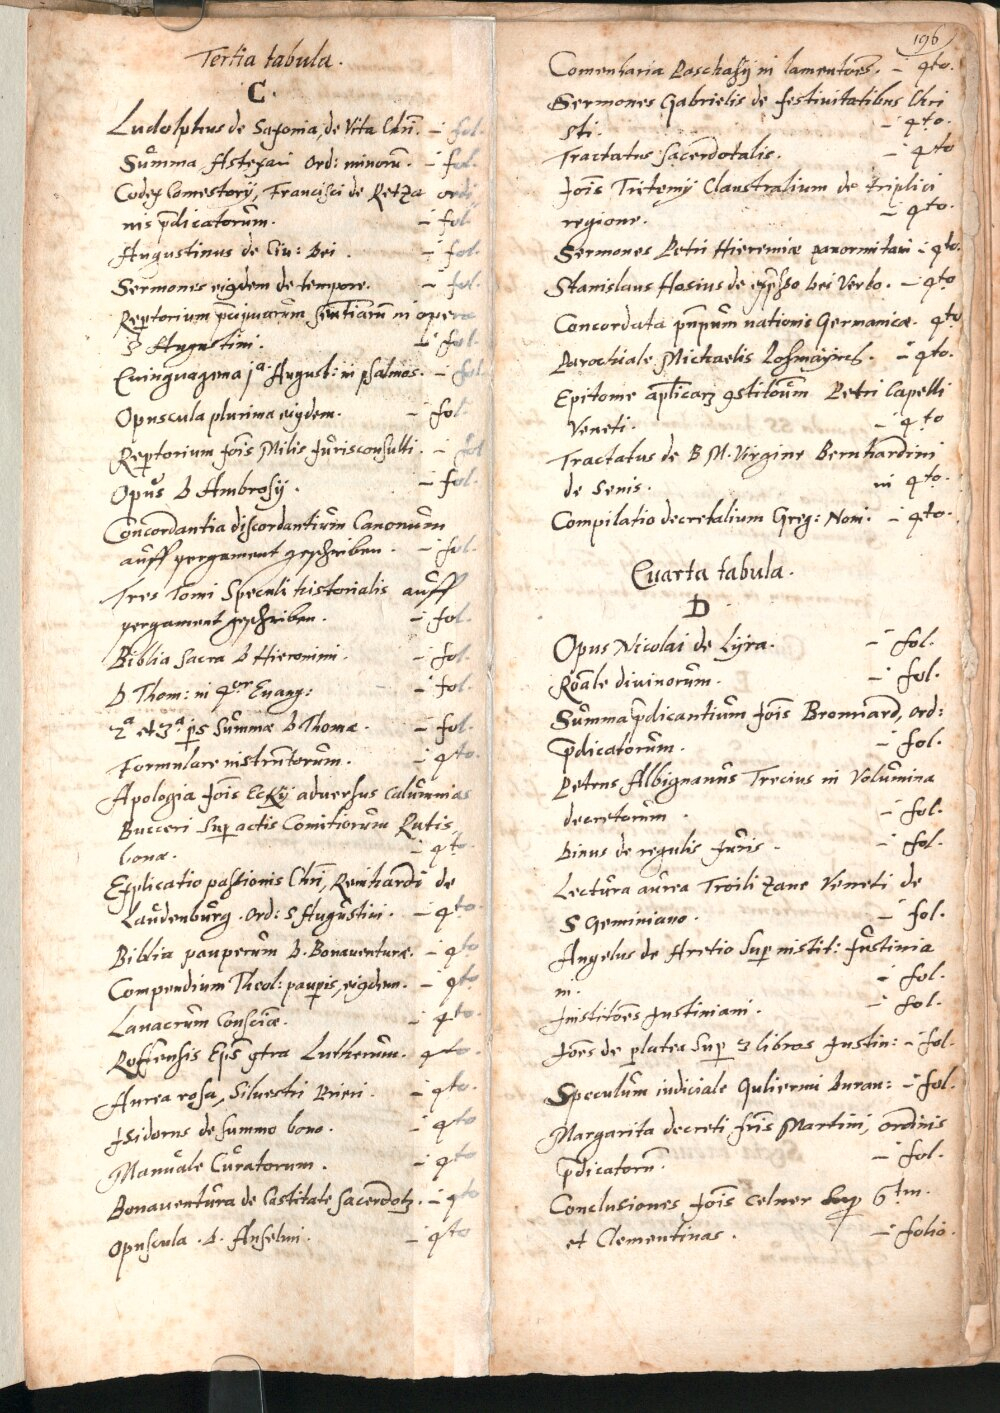 Tertia tabula.
C.
Ludolphus de Saxonia, de Vita Chri. – fol.
Summa Astexani Ord: minorum. – fol.
Codex Comestorij, Francisci de Retza ordi
nis pdicatorum. – fol.
Augustinus de Ciu: Dei. – fol.
Sermones eiusdem de tempore. – fol.
Reptorium pcipuarum sentiarum in opera
S Augustini. – fol.
Quinquagena 1ª August: in psalmos. – fol.
Opuscula plurima eiusdem. – fol.
Reptorium Jois Milis Jurisconsulti. – fol.
Opus D Ambrosij. – fol.
Concordantia discordantium Canonum
auff pergament geschriben. – fol.
Tres Tomi Speculi historialis auff
pergament geschriben. – fol.
Biblia Sacra D Hieronimi. – fol.
D Thom: in 4or Euang: – fol.
2ª et 3ª ps Summæ D Thomæ. – fol.
Formulare instrutorum. – 4to.
Apologia Jois Eckij adversus calumnias
Bucceri sup actis Comitiorum Ratis
bonæ. – 4to.
Explicatio passionis Chri, Reinhardi de
Laudenburg. Ord: S Augustini. – 4to.
Biblia pauperum D. Bonauenturæ. – 4to
Compendium Theol: paupis, eiusdem. – 4to.
Lauacrum Consciæ. – 4to.
Roffensis Eps gtra Lutherum. 4to.
Aurea rosa, Siluestri Prieri. – 4to.
Isidorus de summo bono. – 4to
Manuale Curatorum. – 4to
Bonauentura de Castitate Sacerdotz. – 4to
Opuscula D. Anselmi. – 4to
196
Comentaria Paschasij in lamentoes. – 4to.
Sermones Gabrielis de festiuitatibus Chri
sti. – 4to.
Tractatus Sacerdotalis. – 4to
Jois Tritemij Claustralium de triplici
regione. – 4to.
Sermones Petri Hieremiæ panormitani – 4to.
Stanislaus Hosius de expsso Dei Verbo. – 4to
Concordata pnpum nationis Germanicæ. 4to
Parochiale Michaelis Lohmayrch. – 4to.
Epitome aplicarz gstitoum Petri Capelli
Veneti. – 4to
Tractatus de B M. Virgine Bernhardini
de Senis. in 4to.
Compilatio decretalium Greg: Noni. – 4to.
Quarta tabula.
D
Opus Nicolai de Lyra. – fol.
Roale diuinorum. – fol.
Summa pdicantium Jois Bromiard, ord:
pdicatorum. – fol.
Petrus Albignanus Trecius in Volumina
decretorum. – fol.
Dinus de regulis Juris. – fol.
Lectura aurea Troili Zane Veneti de
S Geminiano. – fol.
Angelus de Aretio sup instit: Justinia
ni. – fol.
Institoes Justiniani. – fol.
Joes de platea sup 3 libros Justin: – fol.
Speculum iudiciale Guliermi Duran: – fol.
Margarita decreti fris Martini, ordinis
pdicatoru. – fol.
Conclusiones Jois Celner sup 6tm.
et Clementinas. – folio.